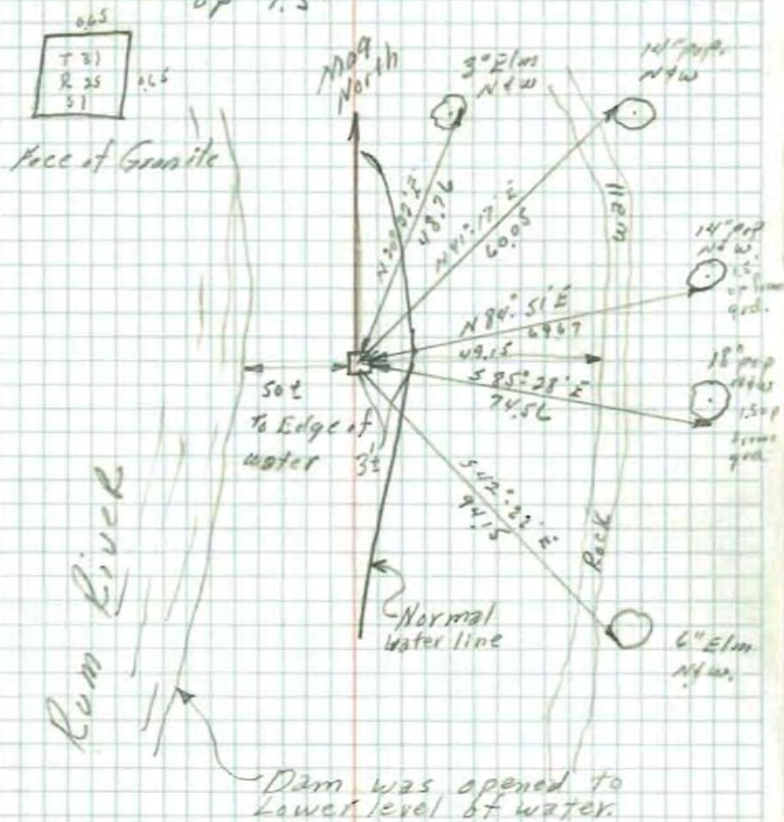 up 1.5'
0.65
T 31
R 25
S 1
0.65
Face of Granite
Mag
North
3" Elm
N & W
14" pop.
N & W
N 20° 32' E
48.76
N 41° 17' E
60.05
Wall
14" pop
N & W
1.5'
up from
grd.
N 84° 51' E
69.67
49.15
S 85° 28' E
74.56
18" pop
N & W
1.5 up
from
grd
50 ±
To Edge of
water
3' ±
S 42° 22' E
94.15
Rock
Rum River
Normal
water line
6" Elm
N & W.
Dam was opened to
Lower level of water.